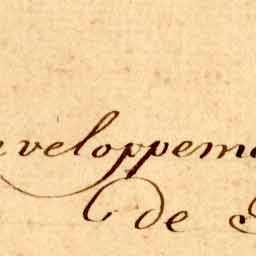 veloppeme
de